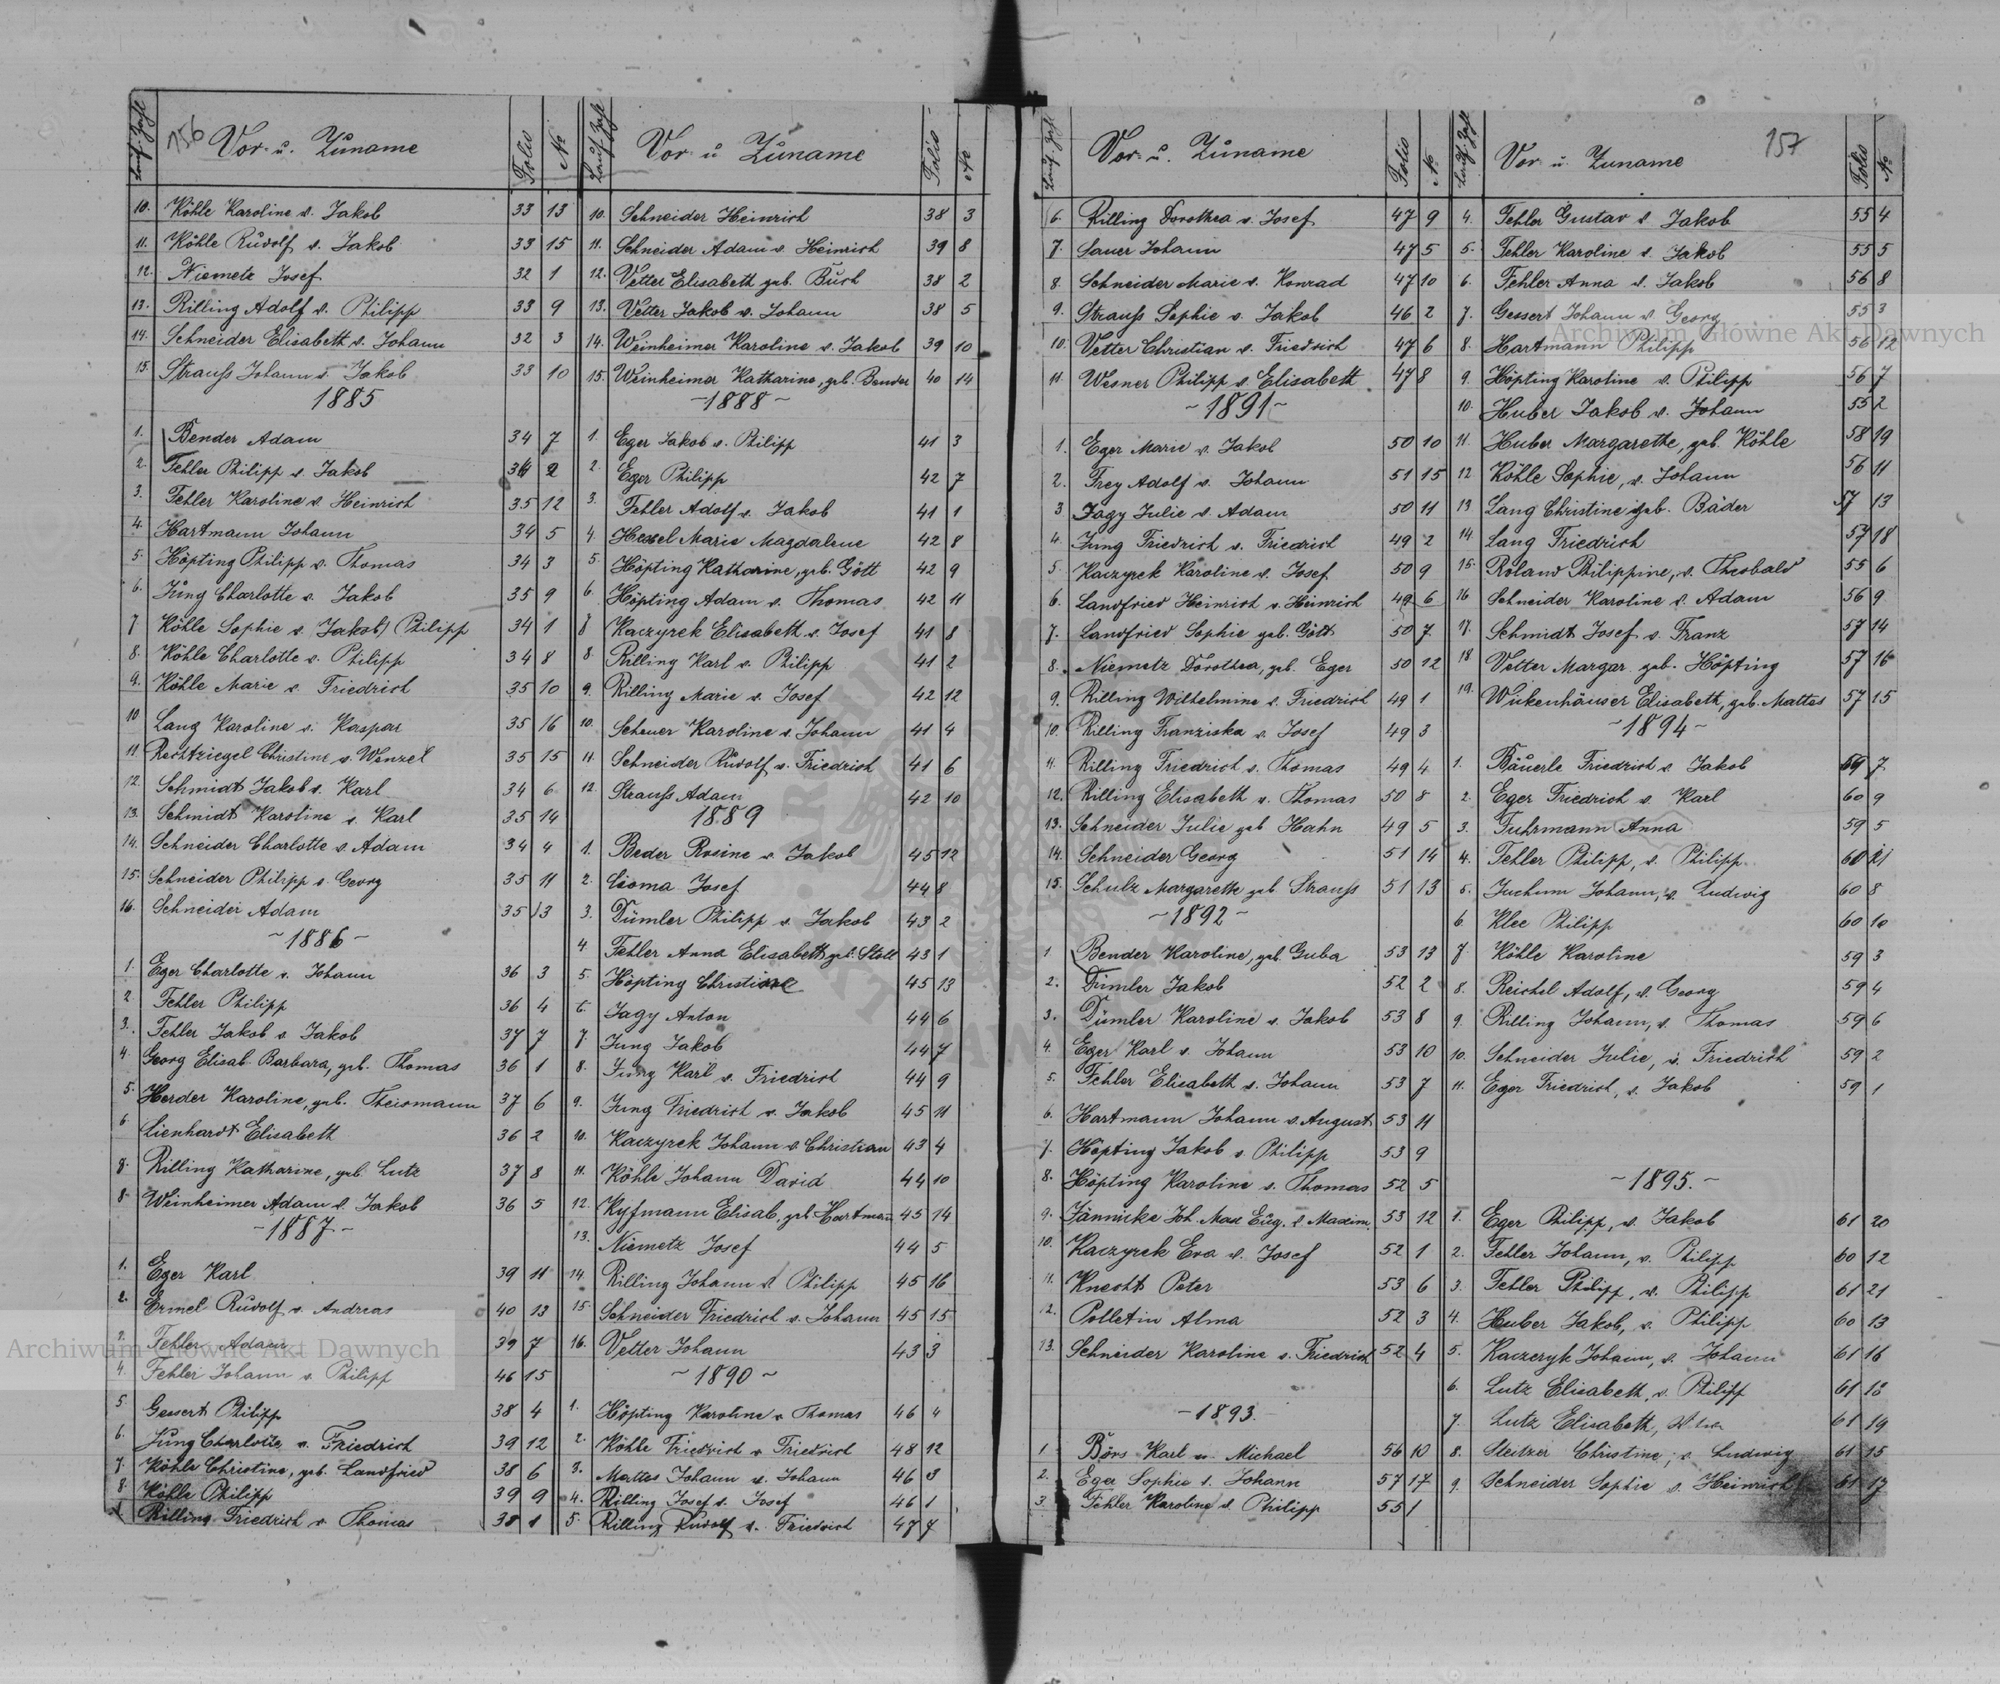 156
Lauf. Zahl Vor- u. Zuname Folio No
10. Köhle Karoline v. Jakob 33 13
11. Köhle Rudolf v. Jakob 33 15
12. Niemetz Josef 32 1
13. Rilling Adolf v. Philipp 33 9
14. Schneider Elisabeth v. Johann 32 3
15. Strauss Johann v. Jakob 33 10
1885
1. Bender Adam 34 7
2. Fehler Philipp v. Jakob 34 2
3. Fehler Karoline v. Heinrich 35 12
4. Hartmann Johann 34 5
5. Höpting Philipp v. Thomas 34 3
6. Jung Charlotte v. Jakob 35 9
7 Köhle Sophie v. (Jakob) Philipp 34 1
8. Köhle Charlotte v. Philipp 34 8
9. Köhle Marie v. Friedrich 35 10
10 Lang Karoline v. Kaspar 35 16
11 Rechtziegel Christine v. Wenzel 35 15
12. Schmidt Jakob v. Karl 34 6
13. Schmidt Karoline v. Karl 35 14
14. Schneider Charlotte v. Adam 34 4
15. Schneider Philipp v. Georg 35 11
16. Schneider Adam 35 13
~1886~
1. Eger Charlotte v. Johann 36 3
2 Fehler Philipp 36 4
3. Fehler Jakob v. Jakob 37 7
4. Georg Elisab. Barbara, geb. Thomas 36 1
5. Herder Karoline, geb. Theismann 37 6
6 Lienhardt Elisabeth 36 2
7. Rilling Katharine, geb. Lutz 37 8
8 Weinheimer Adam v. Jakob 36 5
~1887~
1. Eger Karl 39 11
2. Ermel Rudolf v. Andreas 40 13
3. Fehler Adam 39 7
4. Fehler Johann v. Philipp 46 15
5 Gessert Philipp 38 4
6. Jung Charlotte v. Friedrich 39 12
7. Köhle Christine, geb. Landfried 38 6
8. Köhle Philipp 39 9
Rilling Friedrich v. Thomas 38 1
Lauf. Zahl Vor- u Zuname Folio No
10. Schneider Heinrich 38 3
11. Schneider Adam v. Heinrich 39 8
12. Vetter Elisabeth geb. Buch 38 2
13. Vetter Jakob v. Johann 38 5
14. Weinheimer Karoline v. Jakob 39 10
15. Weinheimer Katharine, geb. Bender 40 14
~1888~
1. Eger Jakob v. Philipp 41 3
2. Eger Philipp 42 7
3. Fehler Adolf v. Jakob 41 1
4. Hessel Marie Magdalene 42 8
5. Höpting Katharine, geb. Gött 42 9
6. Höpting Adam v. Thomas 42 11
7 Kaczyrek Elisabeth v. Josef 41 8
8. Rilling Karl v. Philipp 41 2
9. Rilling Marie v. Josef 42 12
10. Scheuer Karoline v. Johann 41 4
11. Schneider Rudolf v. Friedrich 41 6
12. Strauss Adam 42 10
1889
1. Beder Rosine v Jakob 45 12
2. Cioma Josef 44 8
3. Dümler Philipp v. Jakob 43 2
4 Fehler Anna Elisabeth geb. Stoll 43 1
5. Höpting Christine 45 13
6. Jagy Anton 44 6
7. Jung Jakob 44 7
8. Jung Karl v. Friedrich 44 9
9. Jung Friedrich v. Jakob 45 11
10. Kaczyrek Johann v Christian 43 4
11. Köhle Johann David 44 10
12. Kyfmann Elisab. geb. Hartmann 45 14
13. Niemetz Josef 44 5
14. Rilling Johann v. Philipp 45 16
15. Schneider Friedrich v. Johann 45 15
16. Vetter Johann 43 3
~1890~
1. Höpting Karoline v Thomas 46 4
2. Köhle Friedrich v Friedrich 48 12
3. Mattes Johann v. Johann 46 3
4. Rilling Josef v. Josef 46 1
5. Rilling Rudolf v. Friedrich 47 7
Lauf. Zahl Vor- u. Zuname Folio No
6. Rilling Dorothea v. Josef 47 9
7. Sauer Johann 47 5
8. Schneider Marie v. Konrad 47 10
9. Strauss Sophie v. Jakob 46 2
10. Vetter Christian v. Friedrich 47 6
11. Wesner Philipp v. Elisabeth 47 8
~1891~
1. Eger Marie v. Jakob 50 10
2. Frey Adolf v. Johann 51 15
3 Jagy Julie v. Adam 50 11
4. Jung Friedrich v. Friedrich 49 2
5. Kaczyrek Karoline v. Josef 50 9
6. Landfried Heinrich v. Heinrich 49 6
7. Landfried Sophie geb. Gött 50 7.
8. Niemetz Dorothea, geb. Eger 50 12
9. Rilling Wilhelmine v. Friedrich 49 1
10. Rilling Franziska v. Josef 49 3
11. Rilling Friedrich v. Thomas 49 4
12. Rilling Elisabeth v. Thomas 50 8
13. Schneider Julie geb Hahn 49 5
14. Schneider Georg 51 14
15. Schulz Margareth geb Strauss 51 13
~1892~
1 Bender Karoline, geb. Guba 53 13
2. Dümler Jakob 52 2
3. Dümler Karoline v. Jakob 53 8
4. Eger Karl v. Johann 53 10
5. Fehler Elisabeth v. Johann 53 7
6. Hartmann Johann v. August 53 11
7. Höpting Jakob v Philipp 53 9
8. Höpting Karoline v. Thomas 52 5
9. Jännicke Joh. Max Eug. v Maxim. 53 12
10. Kaczyrek Eva v. Josef 52 1
11. Knecht Peter 53 6
12. Polletin Alma 52 3
13. Schneider Karoline v. Friedrich 52 4
~1893.
1 Börs Karl v. Michael 56 10
2. Eger Sophie v. Johann 57 17
3. Fehler Karoline v. Philipp 55 1
Lauf. Zahl Vor- u. Zuname 157 Folio No
4. Fehler Gustav v. Jakob 55 4
5. Fehler Karoline v. Jakob 55 5
6. Fehler Anna v. Jakob 56 8
7. Gessert Johann v. Georg 55 3
8. Hartmann Philipp 56 12
9. Höpting Karoline v. Philipp 56 7
10. Huber Jakob v. Johann 55 2
11. Huber Margarethe, geb. Köhle 58 19
12 Köhle Sophie, v. Johann 56 11
13. Lang Christine geb. Bäder 57 13
14. Lang Friedrich 57 18
15. Roland Philippine, v. Theobald 55 6
16 Schneider Karoline v. Adam 56 9
17. Schmidt Josef v. Franz 57 14
18 Vetter Margar. geb. Höpting 57 16
19. Wickenhäuser Elisabeth, geb. Mattes 57 15
~1894~
1. Bäuerle Friedrich v. Jakob 7.
2. Eger Friedrich v. Karl 60 9
3. Fuhrmann Anna 59 5
4. Fehler Philipp, v. Philipp 60
5. Juchum Johann, v. Ludwig 60 8
6 Klee Philipp 60 10
7. Köhle Karoline 59 3
8. Reichel Adolf, v. Georg 59 4
9. Rilling Johann, v. Thomas 59 6
10. Schneider Julie, v. Friedrich 59 2
11. Eger Friedrich, v. Jakob 59 1
~1895.~
1. Eger Philipp, v. Jakob 61 20
2. Fehler Johann, v. Philipp 60 12
3. Fehler Philipp, v. Philipp 61 21
4. Huber Jakob, v. Philipp 60 13
5. Kaczeryk Johann, v. Johann 61 16
6. Lutz Elisabeth, v. Philipp 61 18
7. Lutz Elisabeth, 61 19
8. Steitzer Christine, v Ludwig 61 15
9. Schneider Sophie v. Heinrich 61 17
Archiwum Główne Akt Dawnych
Archiwum Główne Akt Dawnych